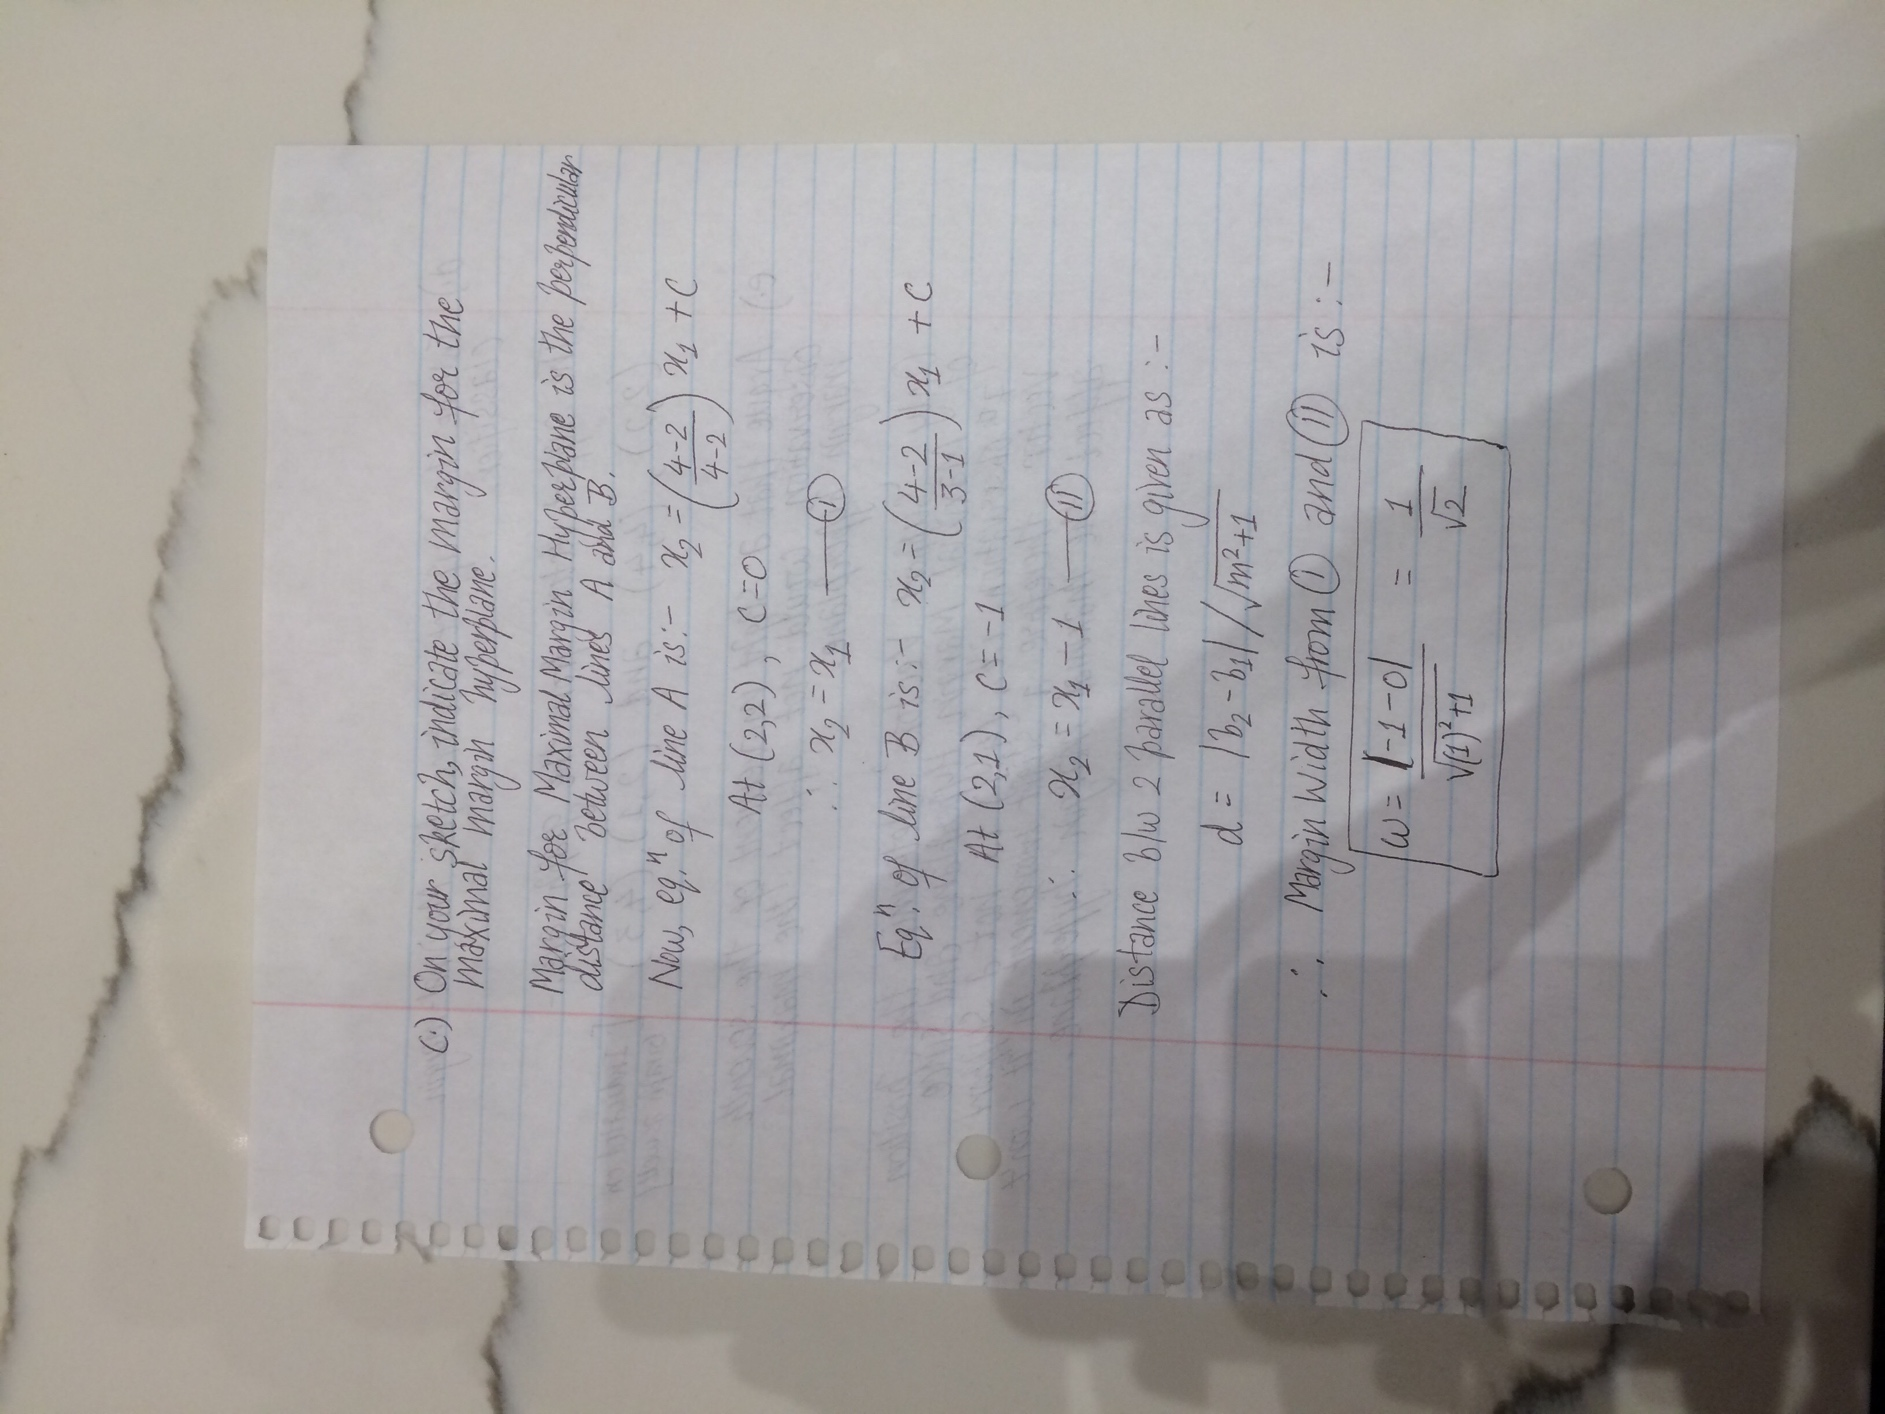 c) On your sketch, indicate the margin for the
maximal margin hyperplane.
Margin for Maximal Margin Hyperplane is the perpendicular
distance between lines A and B.
Now, eqⁿ. of line A is:- x₂ = ((4-2)/(4-2)) x₁ + C
At (2,2), C=0
∴ x₂ = x₁ —— (I)
Eqⁿ. of line B is:- x₂ = ((4-2)/(3-1)) x₁ + C
At (2,1), C=-1
∴ x₂ = x₁ - 1 —— (II)
Distance b/w 2 parallel lines is given as :-
d = |b₂-b₁| / √(m²+1)
∴ Margin Width from (I) and (II) is :-
w = |-1-0| / √((1)²+1) = 1/√2